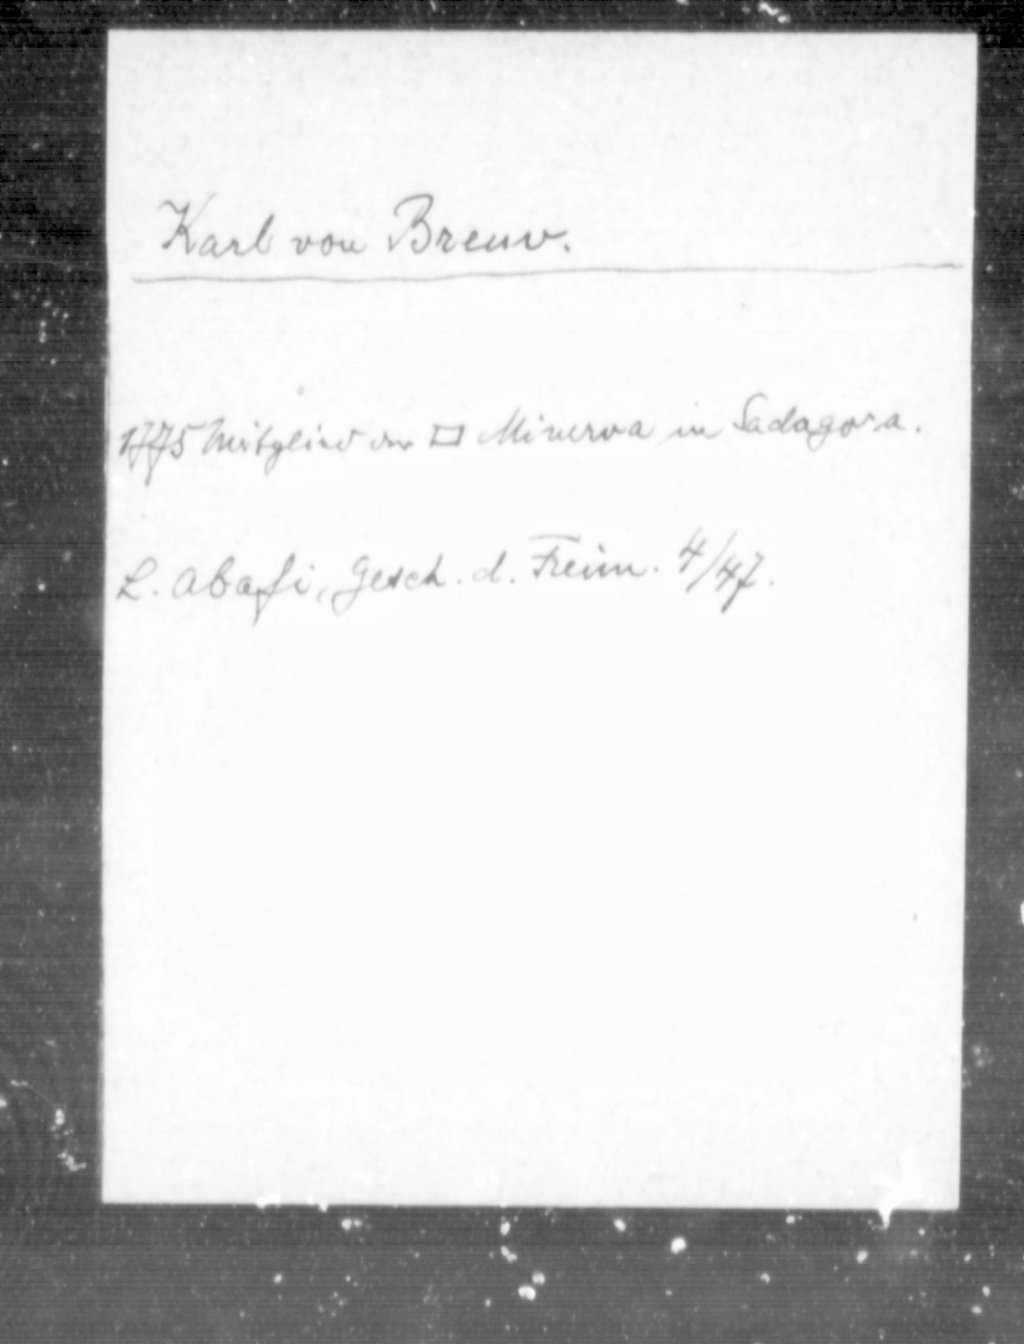 Karl von Breuv.
1775 Mitglied der □ Minerva in Sadagora.
L. Abafi, Gesch. d. Freim. 4/47.